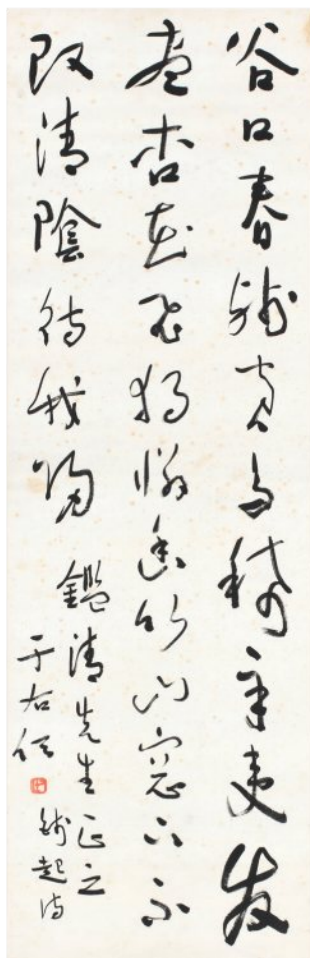 谷口春殘黃鳥稀辛夷花
盡杏花飛獨憐幽竹山窓下不
改清陰待我歸
鑑清先生正之
錢起詩
于右任